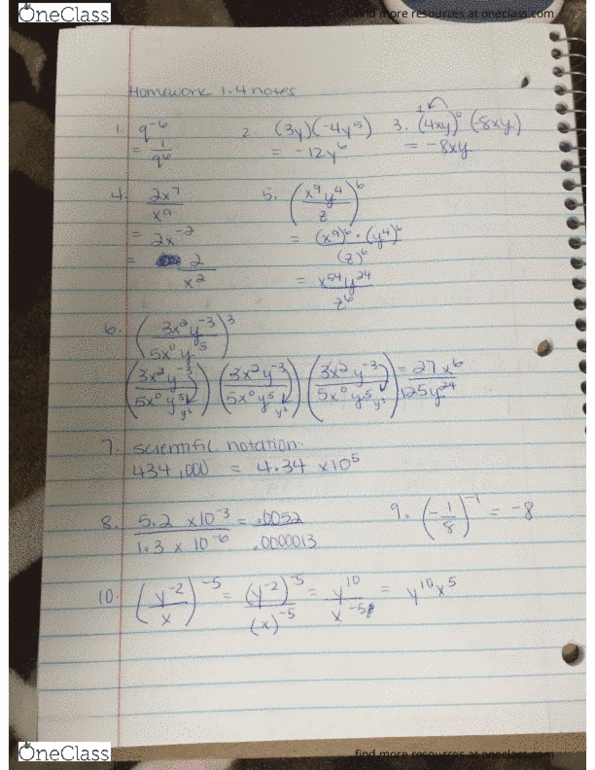 OneClass
find more resources at oneclass.com
Homework 1.4 notes
1. q^-6
= 1/q^6
2. (3y)(-4y^5)
= -12y^6
3. (4xy)^0 (-8xy)
= -8xy
4. 2x^7/x^9
= 2x^-2
= 2/x^2
5. (x^9y^4/z)^6
= (x^9)^6 · (y^4)^6/(z)^6
= x^54y^24/z^6
6. (3x^2y^-3/5x^0y^5)^3
(3x^2y^-3/5x^0y^5) (3x^2y^-3/5x^0y^5) (3x^2y^-3/5x^0y^5) = 27x^6/125y^24
7. scientific notation:
434,000 = 4.34 x10^5
8. 5.2 x10^-3/1.3 x 10^-6 = .0052/.0000013
9. (-1/8)^-1 = -8
10. (y^-2/x)^-5 = (y^-2)^-5/(x)^-5 = y^10/x^-5 = y^10x^5
OneClass
find more resources at oneclass.com